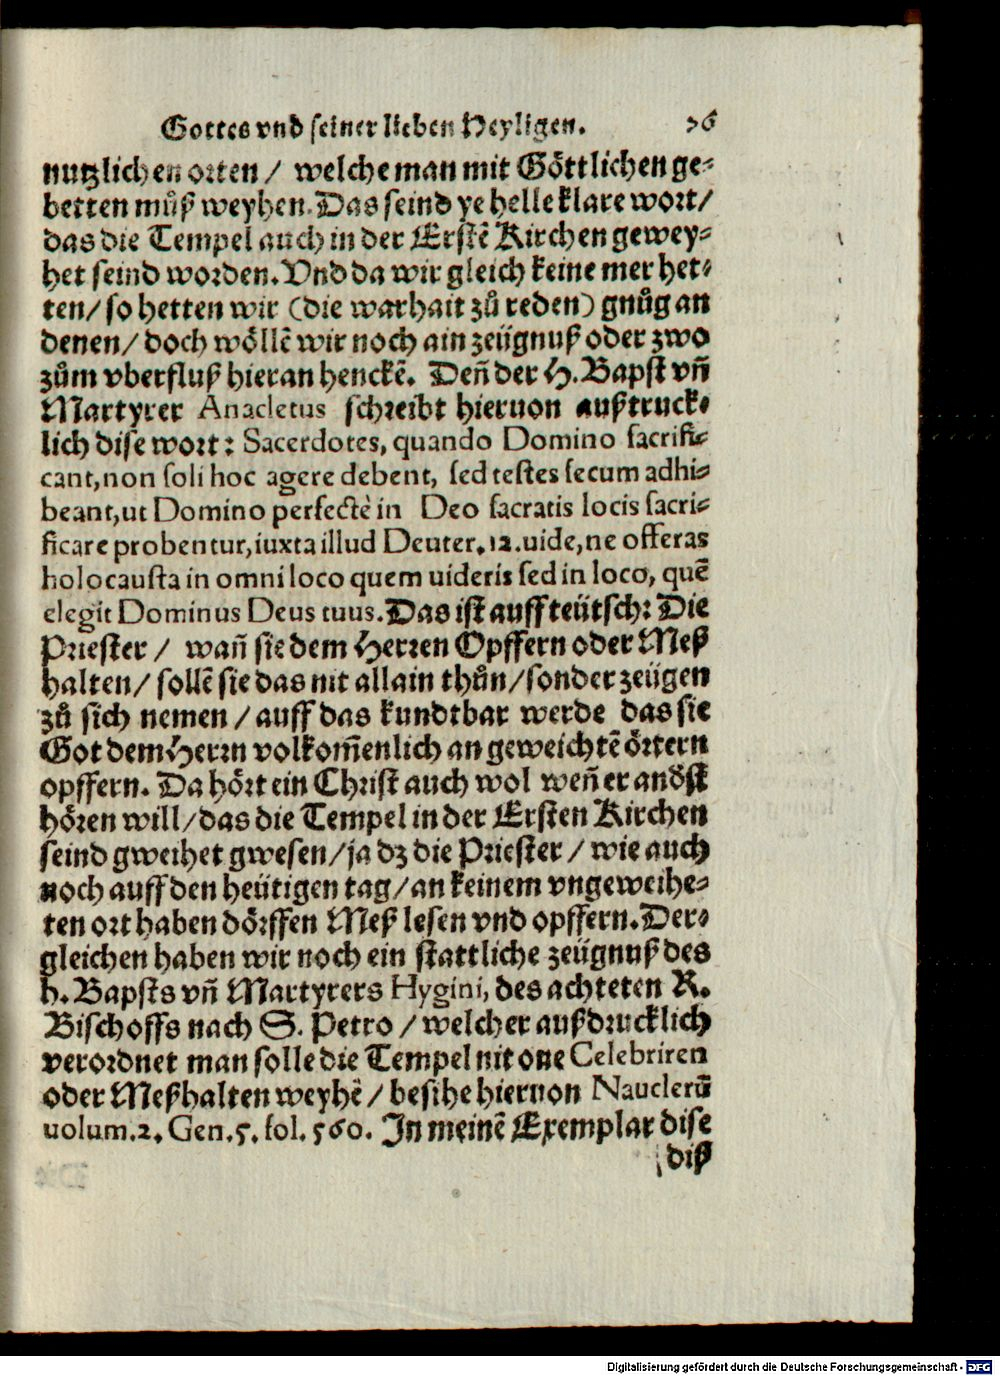 Gottes vnd seiner lieben Heyligen. 76
nutzlichen orten / welche man mit Göttlichen ge-
betten můß weyhen. Das seind ye helle klare wort/
das die Tempel auch in der Erstē Kirchen gewey-
het seind worden. Vnd da wir gleich keine mer het-
ten/ so hetten wir (die warhait zů reden) gnůg an
denen/ doch wöllē wir noch ain zeügnuß oder zwo
zům vberfluß hieran henckē. Deñ der H. Bapst vñ
Martyrer Anacletus schreibt hieruon außtruck-
lich dise wort: Sacerdotes, quando Domino sacrifi-
cant, non soli hoc agere debent, sed testes secum adhi-
beant, ut Domino perfectè in Deo sacratis locis sacri-
ficare probentur, iuxta illud Deuter. 12. uide, ne offeras
holocausta in omni loco quem uideris sed in loco, quē
elegit Dominus Deus tuus. Das ist auff teütsch: Die
Priester / wañ sie dem Herren Opffern oder Meß
halten/ sollē sie das nit allain thůn/ sonder zeügen
zů sich nemen / auff das kundtbar werde das sie
Got dem Herrn volkom̄enlich an geweichtē örtern
opffern. Da hört ein Christ auch wol weñ er andst
hören will/ das die Tempel in der Ersten Kirchen
seind gweihet gwesen/ ja dz die Priester / wie auch
noch auff den heütigen tag/ an keinem vngeweihe-
ten ort haben dörffen Meß lesen vnd opffern. Der-
gleichen haben wir noch ein stattliche zeügnuß des
h. Bapsts vñ Martyrers Hygini, des achteten R.
Bischoffs nach S. Petro / welcher außdrucklich
verordnet man solle die Tempel nit one Celebriren
oder Meßhalten weyhē / besihe hieruon Nauclerū
uolum. 2. Gen. 5. fol. 560. In meinē Exemplar dise
diß
Digitalisierung gefördert durch die Deutsche Forschungsgemeinschaft - DFG